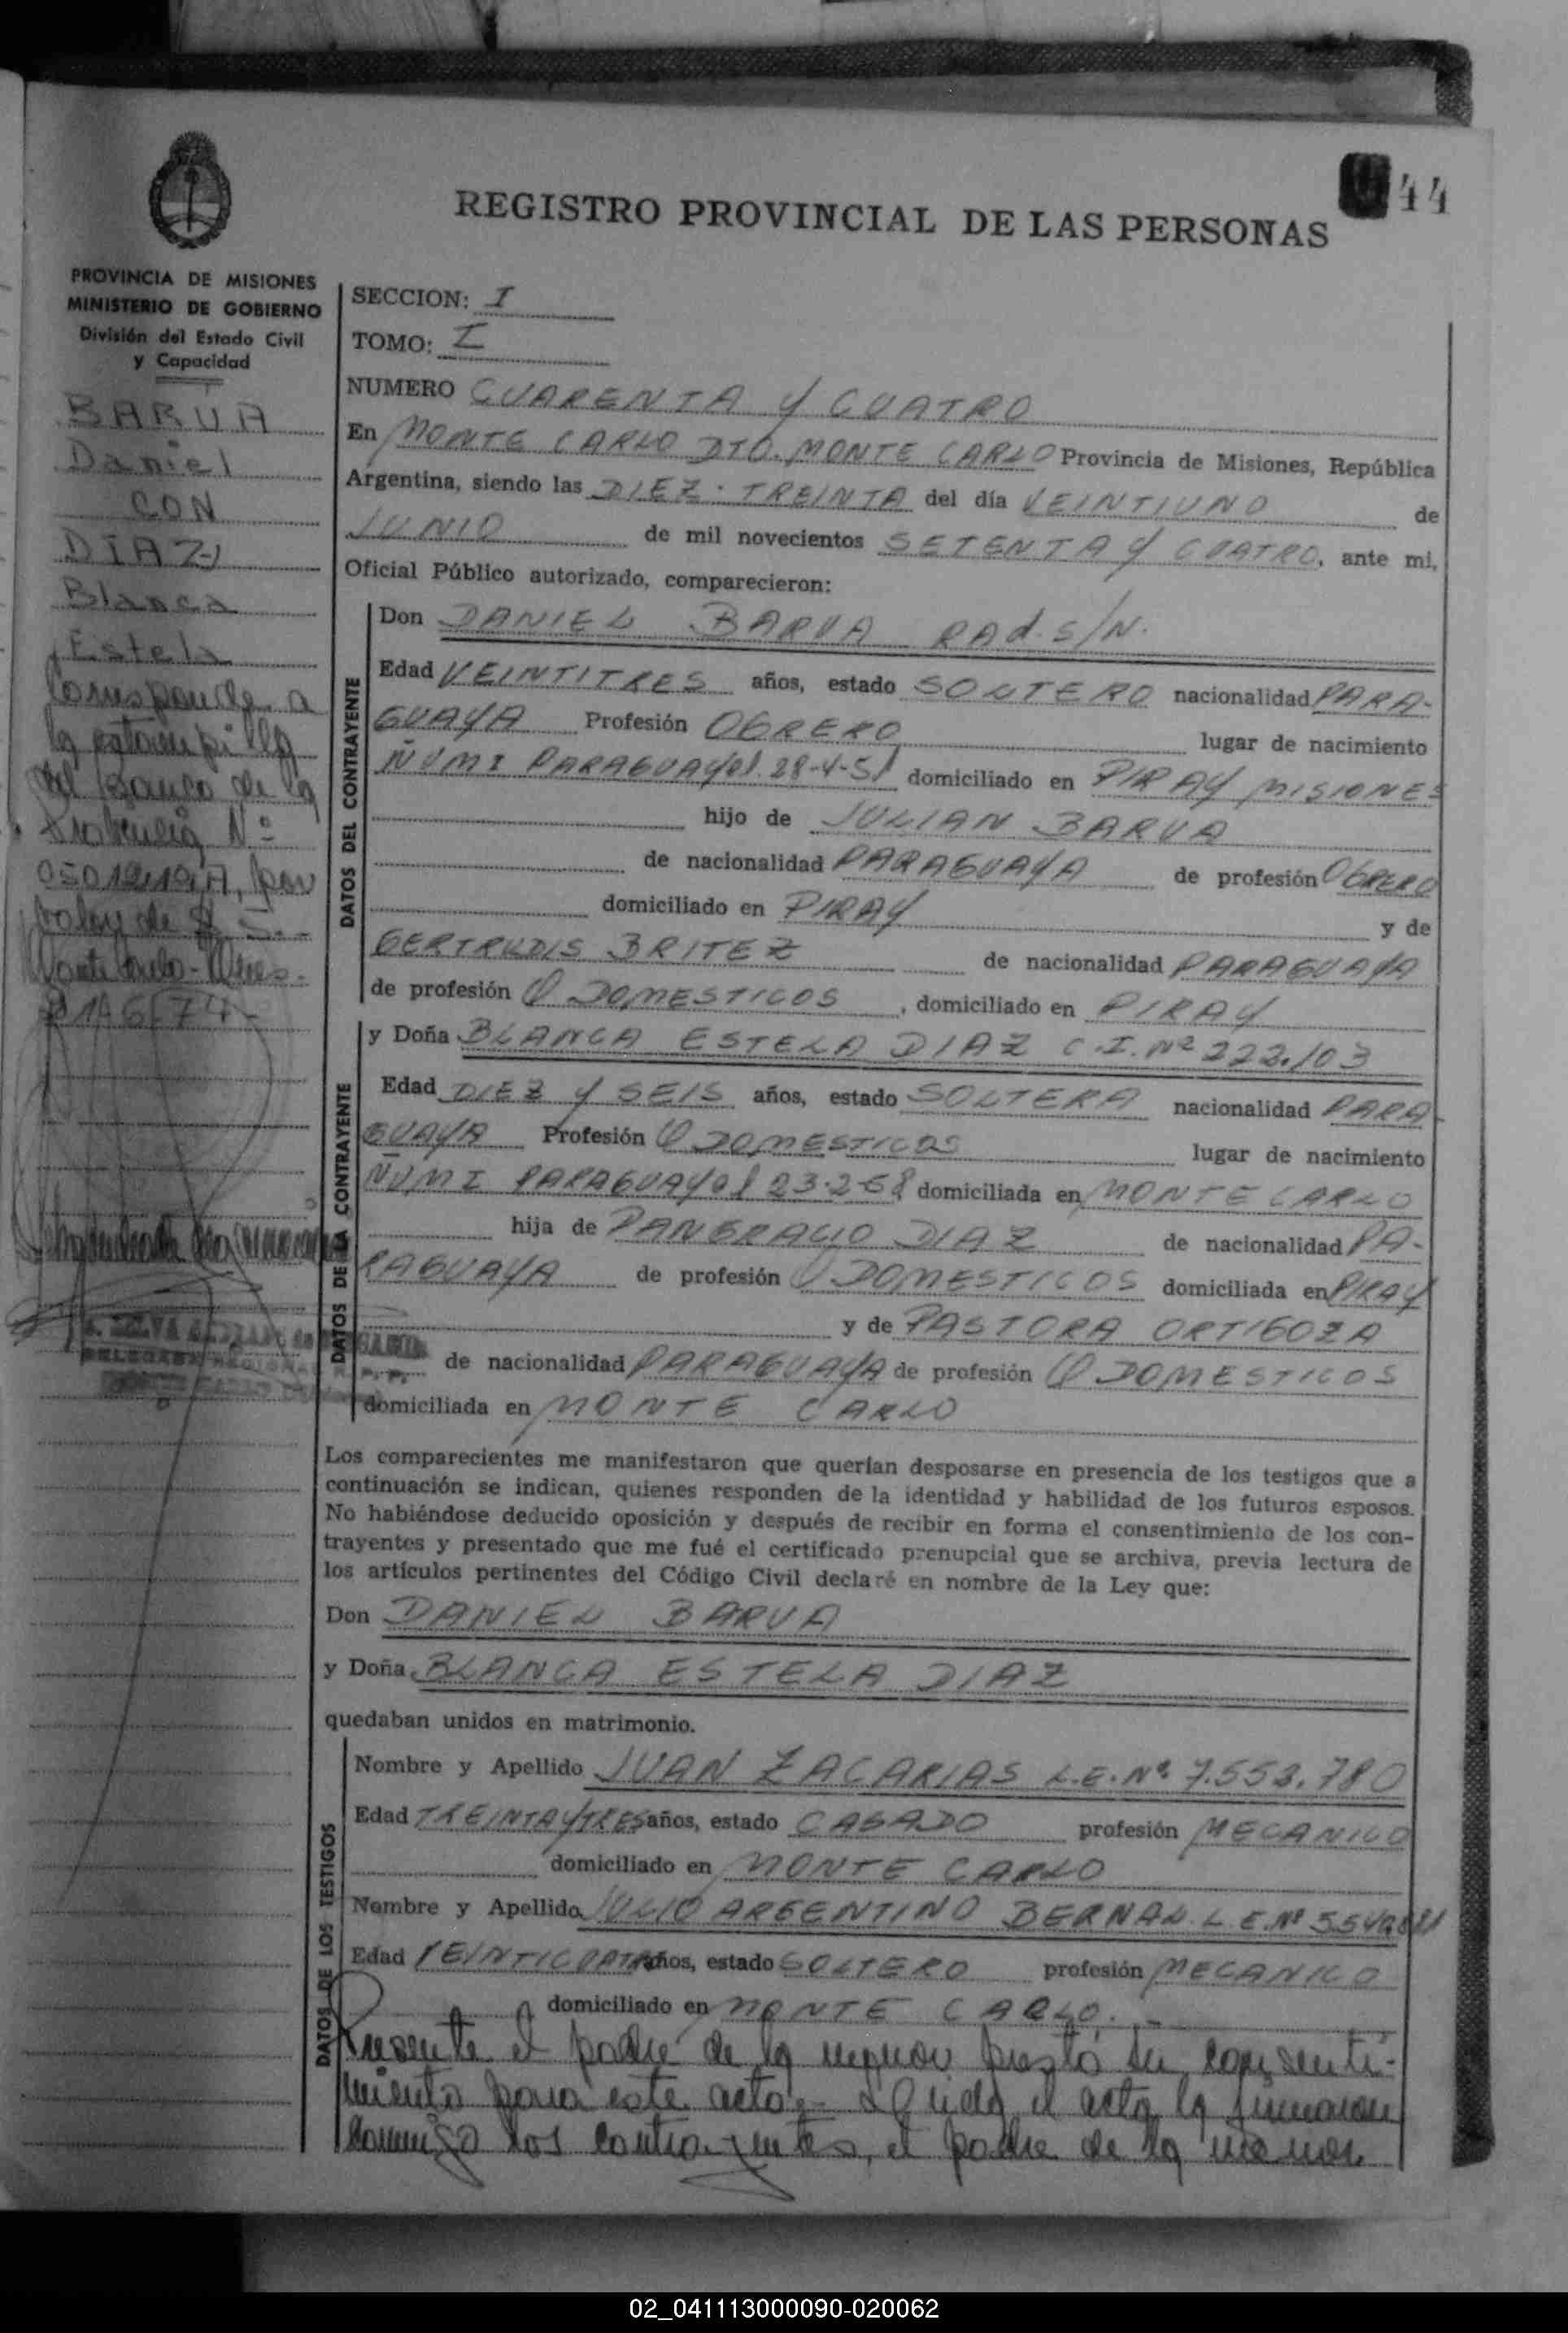 44
REGISTRO PROVINCIAL DE LAS PERSONAS
PROVINCIA DE MISIONES
MINISTERIO DE GOBIERNO
División del Estado Civil
y Capacidad
BARUA
Daniel
CON
DIAZ
Blanca
Estela
Corresponde a
la estampilla
del Banco de la
Provincia Nº
por
valor de $ 5.-
Monte Carlo - Mnes.
SECCION: I
TOMO: I
NUMERO CUARENTA Y CUATRO
En MONTE CARLO DTO. MONTE CARLO Provincia de Misiones, República
Argentina, siendo las DIEZ. TREINTA del día VEINTIUNO de
JUNIO de mil novecientos SETENTA Y CUATRO, ante mi,
Oficial Público autorizado, comparecieron:
DATOS DEL CONTRAYENTE
Don DANIEL BARUA RAd. S/N.
Edad VEINTITRES años, estado SOLTERO nacionalidad PARA-
GUAYA Profesión OBRERO lugar de nacimiento
ÑUMI PARAGUAY el 28-4-51 domiciliado en PIRAY MISIONES
hijo de JULIAN BARUA
de nacionalidad PARAGUAYA de profesión OBRERO
domiciliado en PIRAY y de
GERTRUDIS BRITEZ de nacionalidad PARAGUAYA
de profesión Q DOMESTICOS, domiciliado en PIRAY
DATOS DE LA CONTRAYENTE
y Doña BLANCA ESTELA DIAZ C.I. Nº 223.103
Edad DIEZ Y SEIS años, estado SOLTERA nacionalidad PARA-
GUAYA Profesión Q DOMESTICOS lugar de nacimiento
ÑUMI PARAGUAY el 23-2-58 domiciliada en MONTE CARLO
hija de PANGRACIO DIAZ de nacionalidad PA-
RAGUAYA de profesión Q DOMESTICOS domiciliada en PIRAY
y de PASTORA ORTIGOZA
de nacionalidad PARAGUAYA de profesión Q DOMESTICOS
domiciliada en MONTE CARLO
Los comparecientes me manifestaron que querían desposarse en presencia de los testigos que a
continuación se indican, quienes responden de la identidad y habilidad de los futuros esposos.
No habiéndose deducido oposición y después de recibir en forma el consentimiento de los con-
trayentes y presentado que me fué el certificado prenupcial que se archiva, previa lectura de
los artículos pertinentes del Código Civil declaré en nombre de la Ley que:
Don DANIEL BARUA
y Doña BLANCA ESTELA DIAZ
quedaban unidos en matrimonio.
DATOS DE LOS TESTIGOS
Nombre y Apellido JUAN ZACARIAS L.E. Nº 7.553.780
Edad TREINTA Y TRES años, estado CASADO profesión MECANICO
domiciliado en MONTE CARLO
Nombre y Apellido JULIO ARGENTINO BERNAL L.E. Nº
Edad VEINTICUATRO años, estado SOLTERO profesión MECANICO
domiciliado en MONTE CARLO.
Presente el padre de la menor prestó su consenti-
miento para este acto.- Leida el acta la firmaron
conmigo los contrayentes, el padre de la menor
02_041113000090-020062